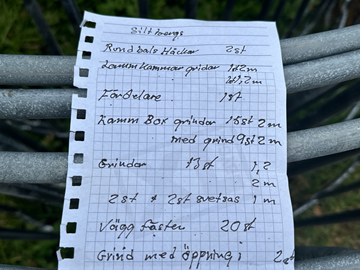 Siltbergs
Rundbals Häckar 2st
Lamm Kammar gridar 1st 2m
1st 1,2m
Fördelare 1st
Lamm Box grindar 18st 2m
med grind 9st 2m
Grindar 13st 1,2
2m
2st + 2st svetsas 1m
Vägg fäster 20st
Grind med öppning i 2st